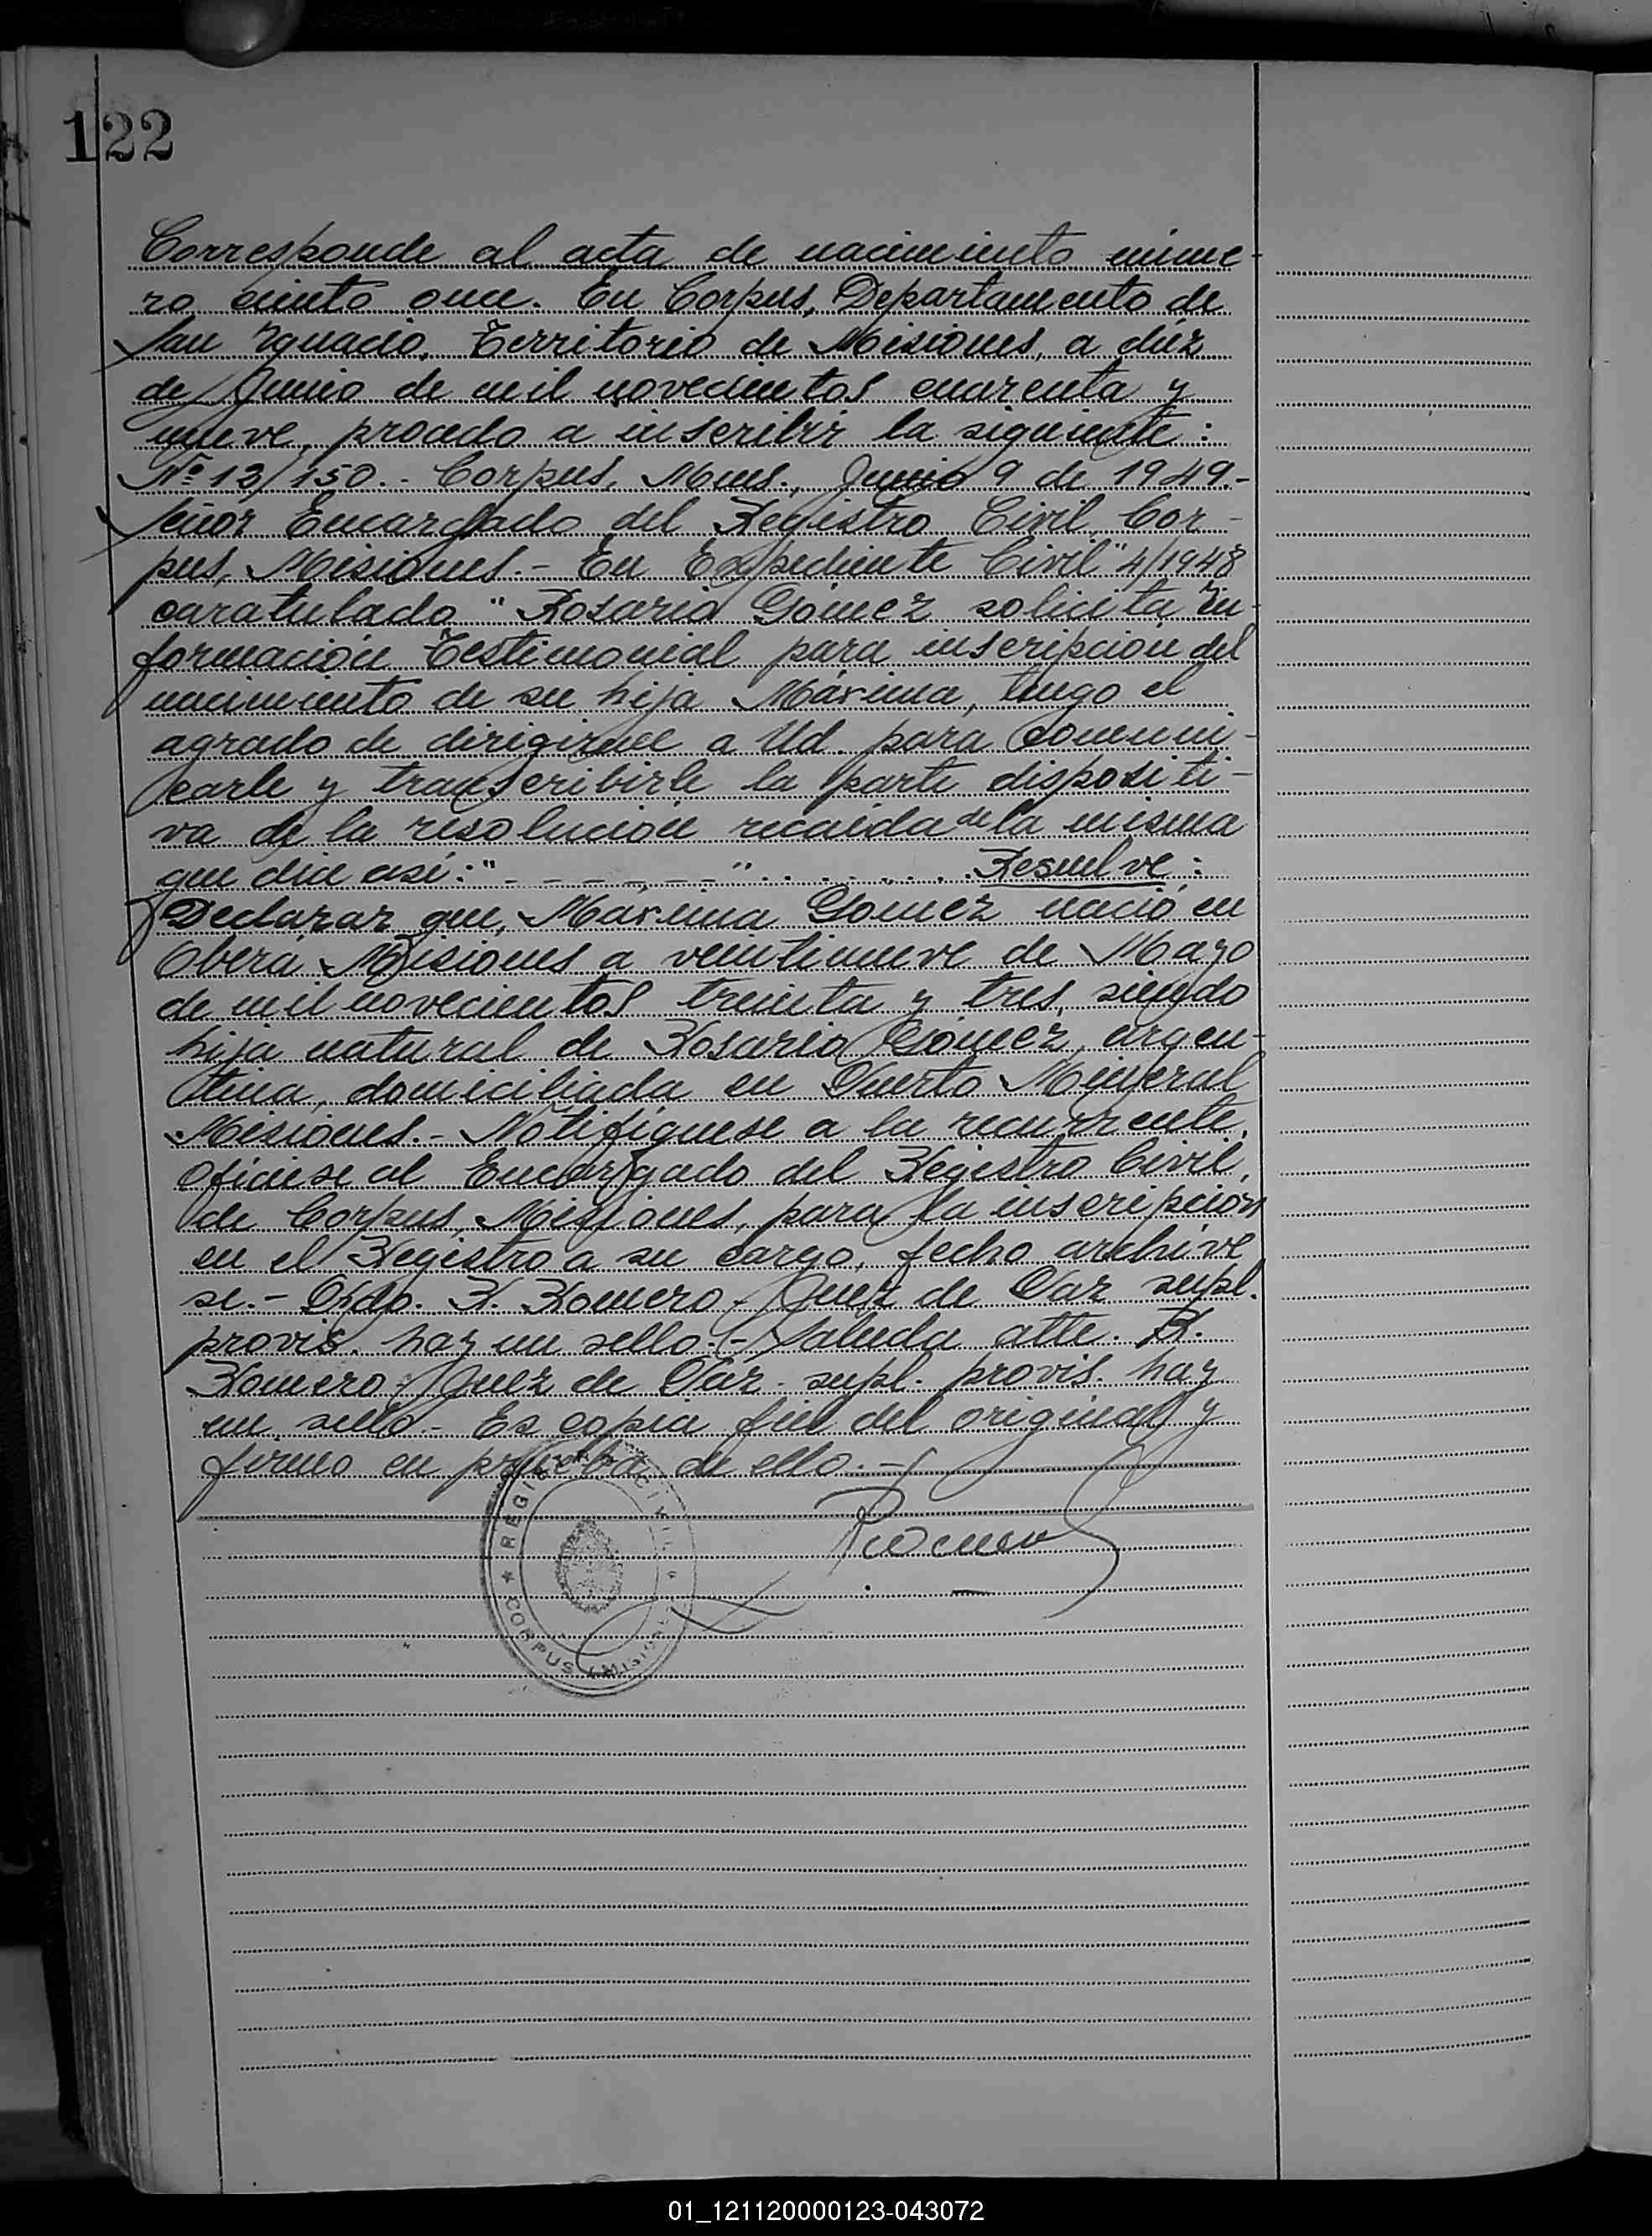 122
Corresponde al acta de nacimiento núme-
ro ciento once. En Corpus, Departamento de
San Ignacio, Territorio de Misiones, a diez
de Junio de mil novecientos cuarenta y
nueve, procedo a inscribir la siguiente:
Nº 13/150.- Corpus, Mnes., Junio 9 de 1949.-
Señor Encargado del Registro Civil, Cor-
pus, Misiones.- En Expediente Civil " 4/1948
caratulado " Rosario Gómez solicita In-
formación Testimonial para inscripción del
nacimiento de su hija Máxima, tengo el
agrado de dirigirme a Ud. para comuni-
carle y transcribirle la parte dispositi-
va de la resolución recaída de la misma
que dice así: " - - - - - - " . . . . . . . Resuelve:
Declarar que, Máxima Gomez nació en
Oberá Misiones a veintinueve de Mayo
de mil novecientos treinta y tres, siendo
hija natural de Rosario Gómez, argen-
tina, domiciliada en Puerto Mineral
Misiones.- Notifíquese a la recurrente,
ofíciese al Encargado del Registro Civil,
de Corpus, Misiones, para la inscripción
en el Registro a su cargo, fecho archive
se.- Fdo. R. Romero. Juez de Paz supl.
provis. hay un sello.- Saluda atte. R.
Romero. Juez de Paz. supl. provis. hay
un sello.- Es copia fiel del original y
firmo en prueba de ello.-
REGISTRO CIVIL
CORPUS (MISIONES)
01_121120000123-043072